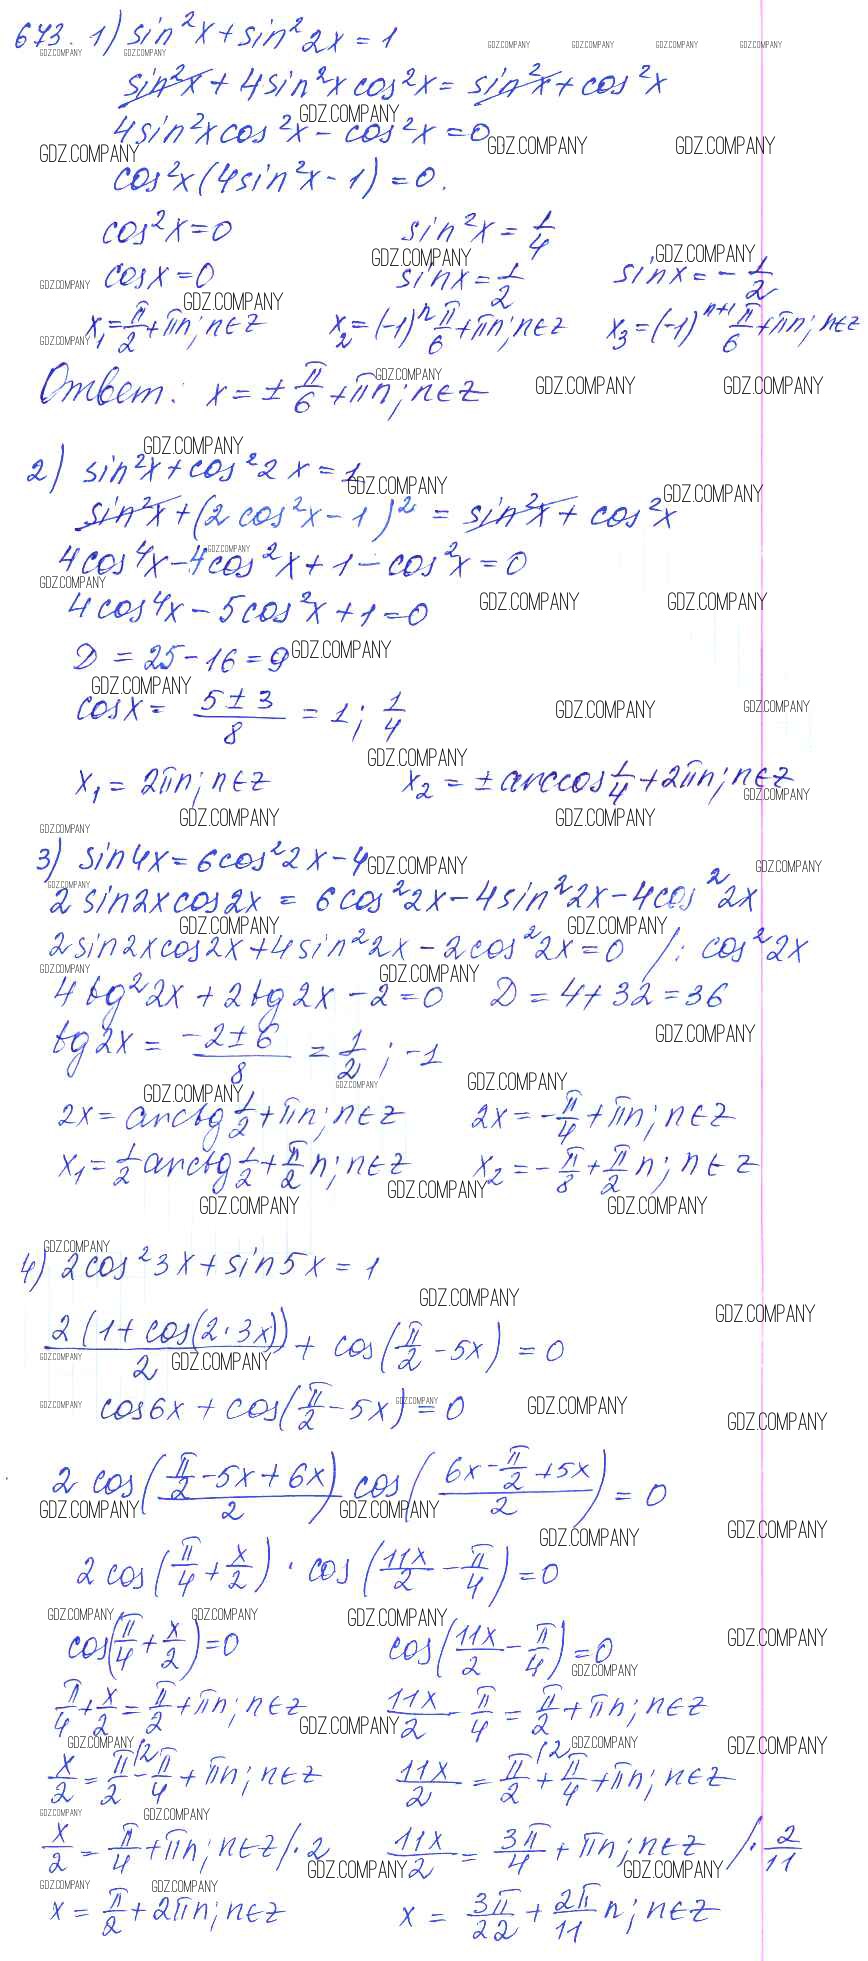 673. 1) sin²x + sin²2x = 1
sin²x + 4sin²x cos²x = sin²x + cos²x
4sin²x cos²x - cos²x = 0
cos²x(4sin²x - 1) = 0.
cos²x = 0 sin²x = 1/4
cosx = 0 sinx = 1/2 sinx = -1/2
x₁ = π/2 + πn; n∈Z x₂ = (-1)ⁿ π/6 + πn; n∈Z x₃ = (-1)ⁿ⁺¹ π/6 + πn; n∈Z
Ответ: x = ± π/6 + πn; n∈Z
2) sin²x + cos²2x = 1
sin²x + (2cos²x - 1)² = sin²x + cos²x
4cos⁴x - 4cos²x + 1 - cos²x = 0
4cos⁴x - 5cos²x + 1 = 0
D = 25 - 16 = 9
cosx = (5 ± 3)/8 = 1; 1/4
x₁ = 2πn; n∈Z x₂ = ± arccos 1/4 + 2πn; n∈Z
3) sin4x = 6cos²2x - 4
2sin2x cos2x = 6cos²2x - 4sin²2x - 4cos²2x
2sin2x cos2x + 4sin²2x - 2cos²2x = 0 /: cos²2x
4tg²2x + 2tg2x - 2 = 0 D = 4 + 32 = 36
tg2x = (-2 ± 6)/8 = 1/2; -1
2x = arctg 1/2 + πn; n∈Z 2x = -π/4 + πn; n∈Z
x₁ = 1/2 arctg 1/2 + π/2 n; n∈Z x₂ = -π/8 + π/2 n; n∈Z
4) 2cos²3x + sin5x = 1
2(1 + cos(2·3x))/2 + cos(π/2 - 5x) = 0
cos6x + cos(π/2 - 5x) = 0
2cos((π/2 - 5x + 6x)/2) cos((6x - π/2 + 5x)/2) = 0
2cos(π/4 + x/2) · cos(11x/2 - π/4) = 0
cos(π/4 + x/2) = 0 cos(11x/2 - π/4) = 0
π/4 + x/2 = π/2 + πn; n∈Z 11x/2 - π/4 = π/2 + πn; n∈Z
x/2 = π/2 (2 - π/4 + πn; n∈Z 11x/2 = π/2 (2 + π/4 + πn; n∈Z
x/2 = π/4 + πn; n∈Z /· 2 11x/2 = 3π/4 + πn; n∈Z /· 2/11
x = π/2 + 2πn; n∈Z x = 3π/22 + 2π/11 n; n∈Z
GDZ.COMPANY